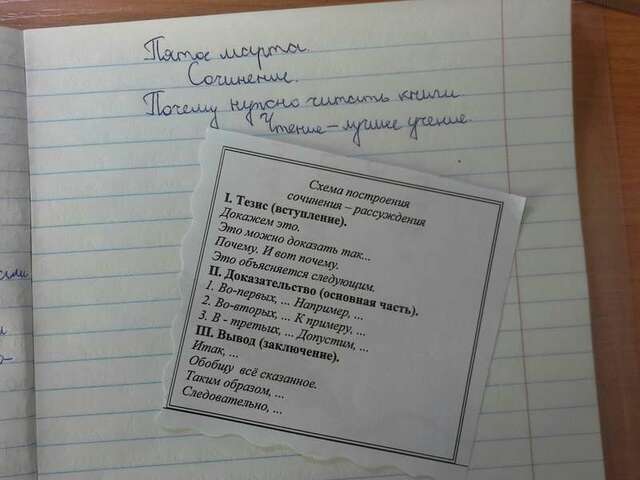 Пятое марта.
Сочинение.
Почему нужно читать книги
Чтение – лучшее учение.
Схема построения
сочинения – рассуждения
I. Тезис (вступление).
Докажем это.
Это можно доказать так...
Почему. И вот почему.
Это объясняется следующим.
II. Доказательство (основная часть).
1. Во-первых, ... Например, ...
2. Во-вторых, ... К примеру, ...
3. В - третьих, ... Допустим, ...
III. Вывод (заключение).
Итак, ...
Обобщу всё сказанное.
Таким образом, ...
Следовательно, ...